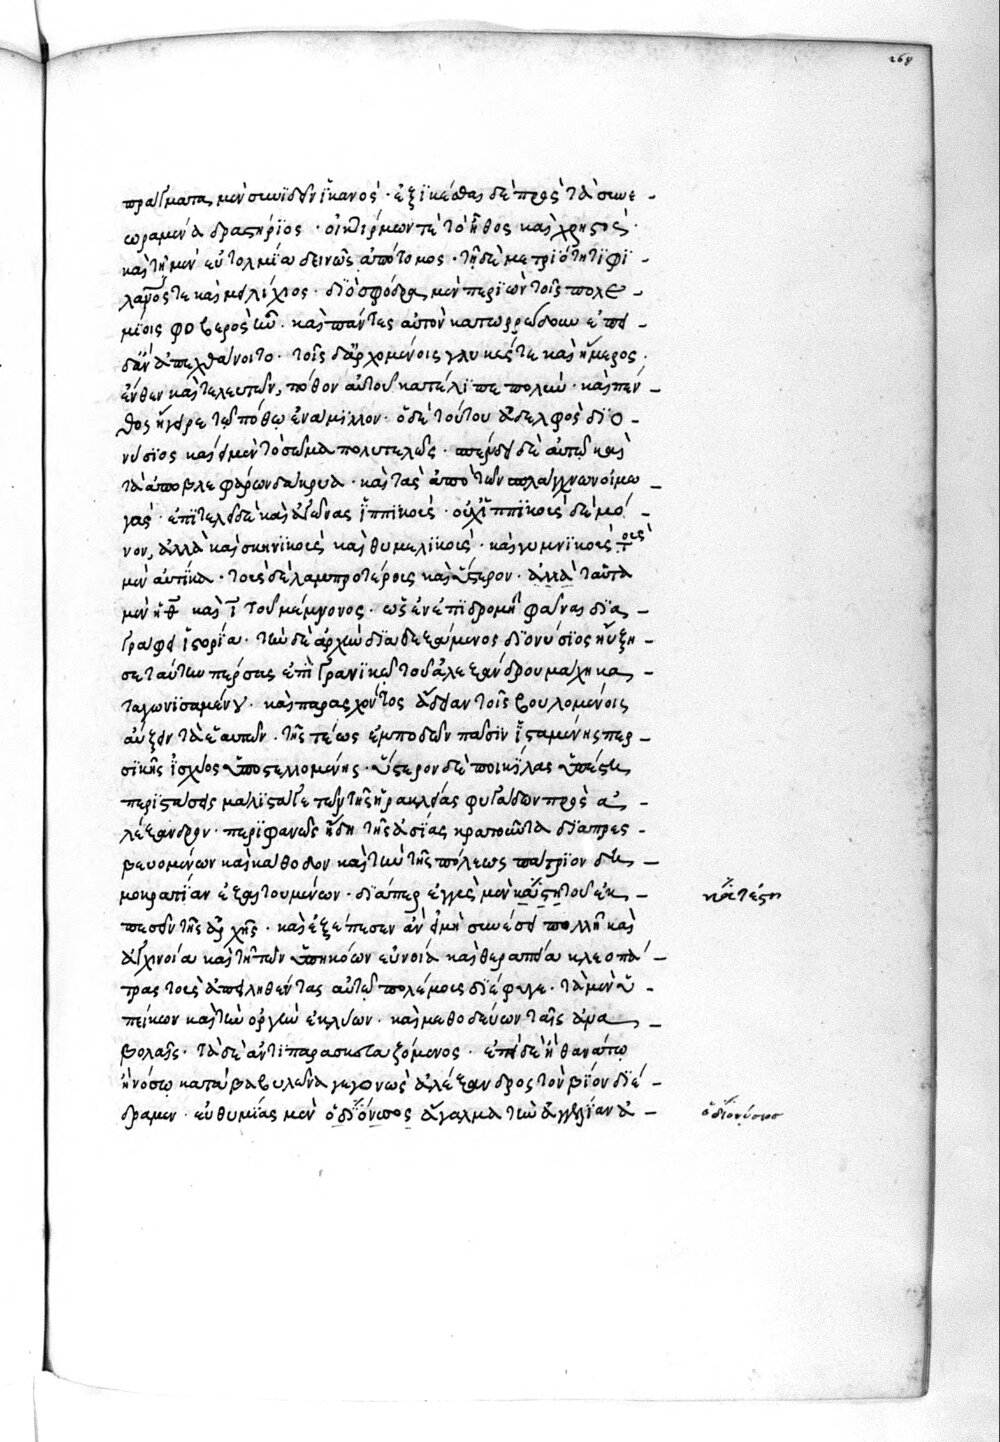 πράγματα μὲν συνϊδεῖν ἱκανὸς· ἐξϊκέσθαι δὲ πρὸς τὰ συνε-
ωραμένα δραστήριος· οἰκτίρμων τὲ τὸ ἦθος καὶ χρηστὸς·
καὶ τῆ μὲν εὐτολμία δεινῶς ἀπότομος· τῆ δὲ μετριότητι φι-
λανος τε καὶ μειλίχιος· διὸ σφόδρα μὲν περιὼν τοῖς πολε-
μίοις φοβερὸς ἦν· καὶ πάντες αὐτὸν κατωρρώδουν ἐπει-
δὰν ἀπεχθάνοιτο· τοῖς δ' ἀρχομένοις γλυκύς τε καὶ ἥμερος·
ἔνθεν καὶ τελευτῶν, πόθον αὐτοῦ κατέλιπε πολὺν· καὶ πέν-
θος ἤγειρε τῶ πόθω ἐνάμιλλον· ὁ δὲ τούτου ἀδελφὸς διο-
νύσιος καίει μὲν τὸ σῶμα πολυτελῶς· σπένδει δὲ αὐτῶ καὶ
τὰ ἀπο βλεφάρων δάκρυα· καὶ τὰς ἀπὸ τῶν σπλάγχνων οἰμω-
γὰς· ἐπιτελεῖ δὲ καὶ ἀγῶνας ἱππικοὺς· οὐχ ἱππικοὺς δὲ μό-
νον, ἀλλὰ καὶ σκηνικοὺς καὶ θυμελικοὺς· καὶ γυμνικοὺς· τοὺς
μὲν αὐτίκα· τοὺς δὲ λαμπροτέρους καὶ ὕστερον· ἀλλὰ ταῦτα
μὲν ἡ θ καὶ ι τοῦ μέμνονος· ὡς ἐν ἐπιδρομῆ φάναι δια-
γράφει ἱστορία· τὴν δὲ ἀρχὴν διαδεξάμενος διονύσιος ηὔξη-
σε ταύτην πέρσας ἐπὶ γρανίκω τοῦ ἀλεξάνδρου μάχη κα-
ταγωνισαμένου· καὶ παρασχόντος ἄδειαν τοῖς βουλομένοις
αὔξειν τὰ ἑαυτῶν· τῆς τέως ἐμποδὼν πᾶσιν ἱσταμένης περ-
σικῆς ἰσχύος ὑποστελλομένης· ὕστερον δὲ ποικίλας ὑπέστη
περιστάσεις μάλιστα γε τῶν τῆς ἡρακλείας φυγάδων πρὸς ἀ-
λέξανδρον· περιφανῶς ἤδη τῆς ἀσίας κρατοῦντα διαπρεσ-
βευομένων καὶ κάθοδον καὶ τὴν τῆς πόλεως πάτριον δη-
μοκρατίαν ἐξαιτουμένων· διάπερ ἐγγὺς μὲν καίστη τοῦ ἐκ-
πεσεῖν τῆς ἀρχῆς· καὶ ἐξέπεσεν ἂν εἰ μὴ συνέσει πολλῆ καὶ
ἀγχινοία καὶ τῆ τῶν ὑπηκόων εὐνοία καὶ θεραπεία κλεοπά-
τρας τοὺς ἀπειληθέντας αὐτῶ πολέμους διέφυγε· τὰ μὲν ὑ-
πείκων καὶ τὴν ὀργὴν ἐκλύων· καὶ μεθοδεύων ταῖς ἀνα-
βολαῖς· τὰ δὲ ἀντιπαρασκευαζόμενος· ἐπεὶ δὲ ἢ θανάτω
ἢ νόσω κατὰ βαβυλῶνα γεγονὼς ἀλέξανδρος τὸν βίον διέ-
δραμεν· εὐθυμίας μὲν ὁ διόνυσος ἄγαλμα τὴν ἀγγελίαν ἀ-
κατέστη
ὁ διονύσιος
268